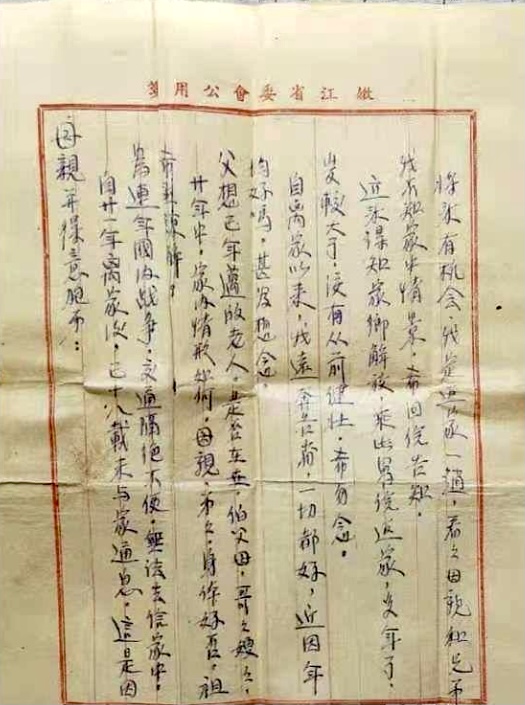 嫩江省委會公用箋
母親并保意胞弟：
自廿一年離家後，已十八載未与家通息，這是因
為連年國內战争，交通隔绝不便，無法去信家中，
希到諒解。
廿年中，家內情形如何，母親，弟々，身体好否，祖
父想已年邁 老人，是否在世，伯父母，哥々嫂々，
均好嗎，甚为想念。
自离家以来，我遠奔各省，一切都好，近因年
岁較大了，没有从前健壮，希勿念。
近来得知家鄉解放，乘此 信返家， 年了，
我不知家中情景，希回信告知。
将来有機会，我定返家一趟，看々母親和兄弟